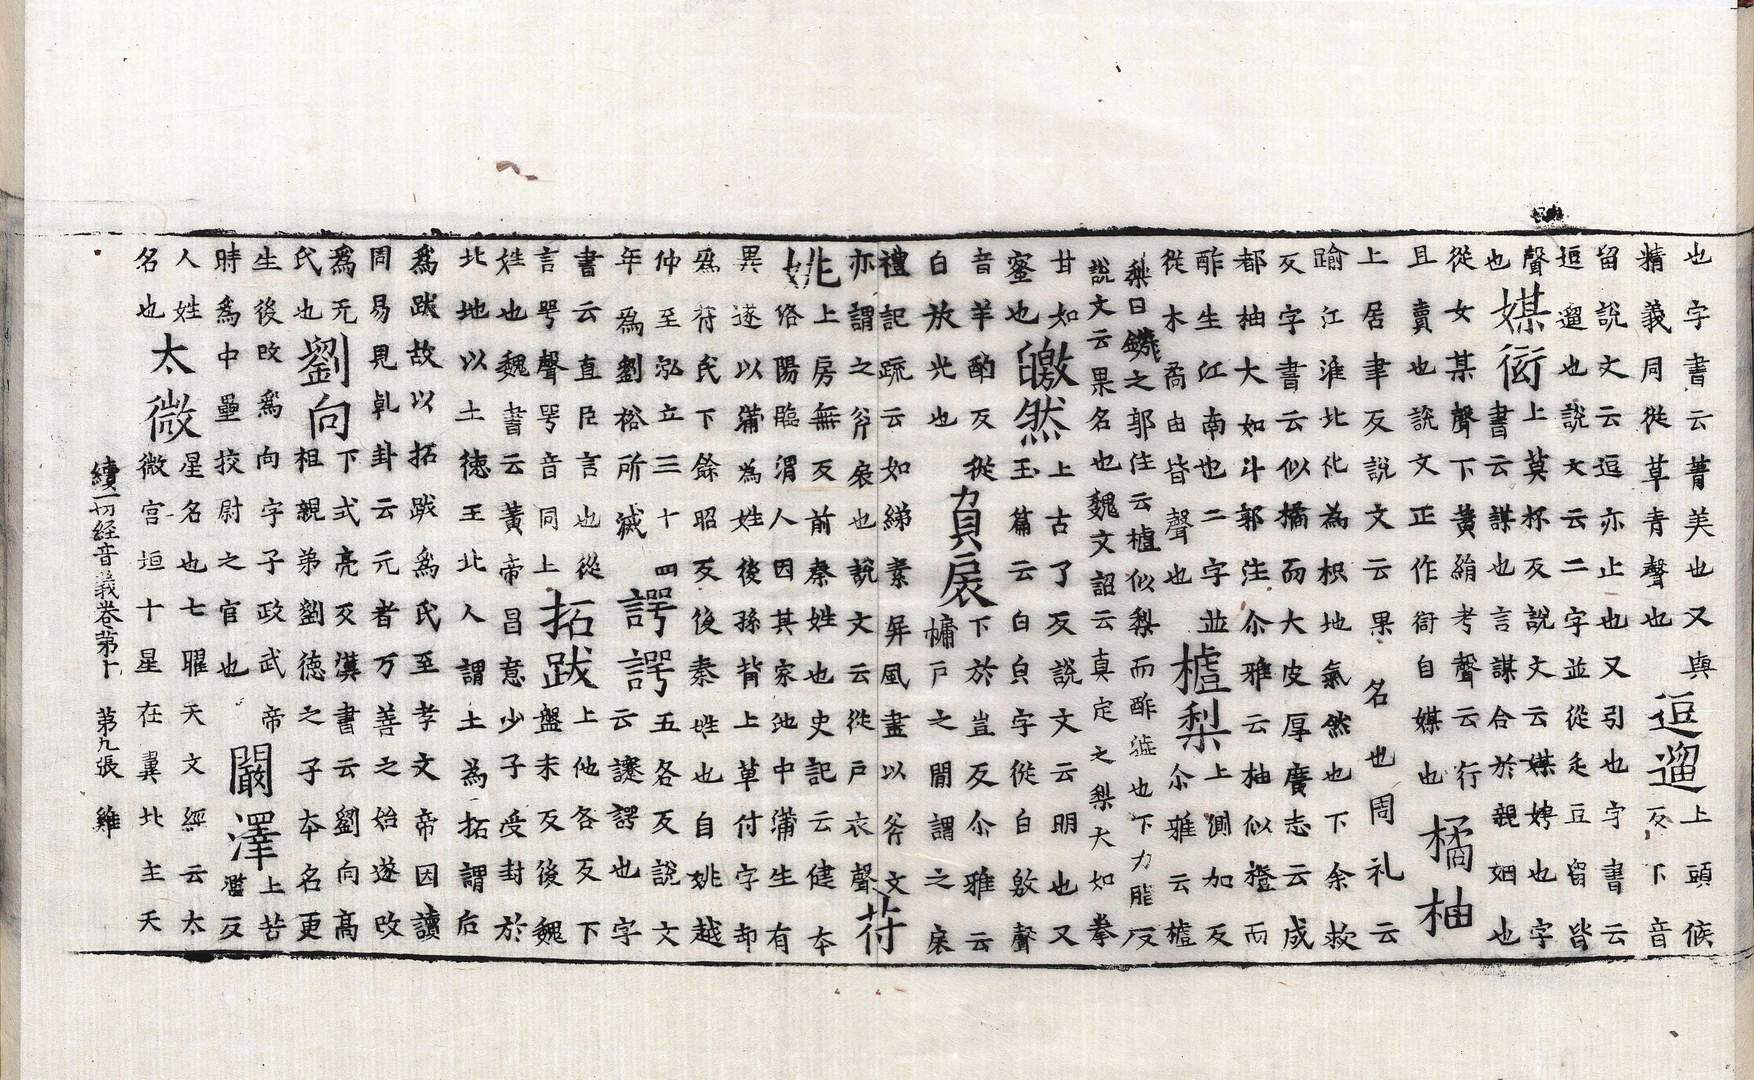 也字書云菁美也又與
精義同從草青聲也
逗遛
上頭候
反下音
留說文云逗亦止也又引也字書云
逗遛也說文云二字並從辵豆留皆
聲
也
媒衒
上莫杯反說文云媒娉也字
書云謀也言謀合於親姻也
從女某聲下黃絹考聲云行
且賣也說文正作衙自媒也
橘柚
上居聿反說文云果名也周礼云
踰江淮北化為枳地氣然也下余救
反字書云似橘而大皮厚廣志云成
都柚大如斗郭注尒雅云柚似橙而
酢生江南也二字並
從木矞由皆聲也
樝梨
上測加反
尒雅云樝
梨曰鑽之郭注云樝似梨而酢澁也下力脂反
說文云果名也魏文詔云真定之梨大如拳
甘如
蜜也
皦然
上古了反說文云明也又
玉篇云白皃字從白敫聲
音羊酌反從
白放光也
負扆
下於豈反尒雅云
牖戶之間謂之扆
禮記疏云如綈素屏風畫以斧文
亦謂之斧扆也說文云從戶衣聲
苻
姚
上房無反前秦姓也史記云健本
洛陽臨渭人因其家池中蒲生有
異遂以蒲為姓後孫背上草付字却
爲苻氏下餘昭反後秦姓也自姚越
仲至泓立三十四
年為劉裕所滅
諤諤
五各反說文
云讜諤也字
書云直臣言也從
言咢聲咢音同上
拓跋
上他各反下
盤末反後魏
姓也魏書云黃帝昌意少子受封於
北地以土德王北人謂土為拓謂后
爲跋故以拓跋爲氏至孝文帝因讀
周易見乹卦云元者万善之始遂改
爲元
氏也
劉向
下式亮反漢書云劉向高
祖親弟劉德之子本名更
生後改爲向字子政武帝
時爲中壘挍尉之官也
闞澤
上苦
濫反
人姓
名也
太微
星名也七曜天文經云太
微宮垣十星在翼北主天
續一切經音義卷第十 第九張 雞